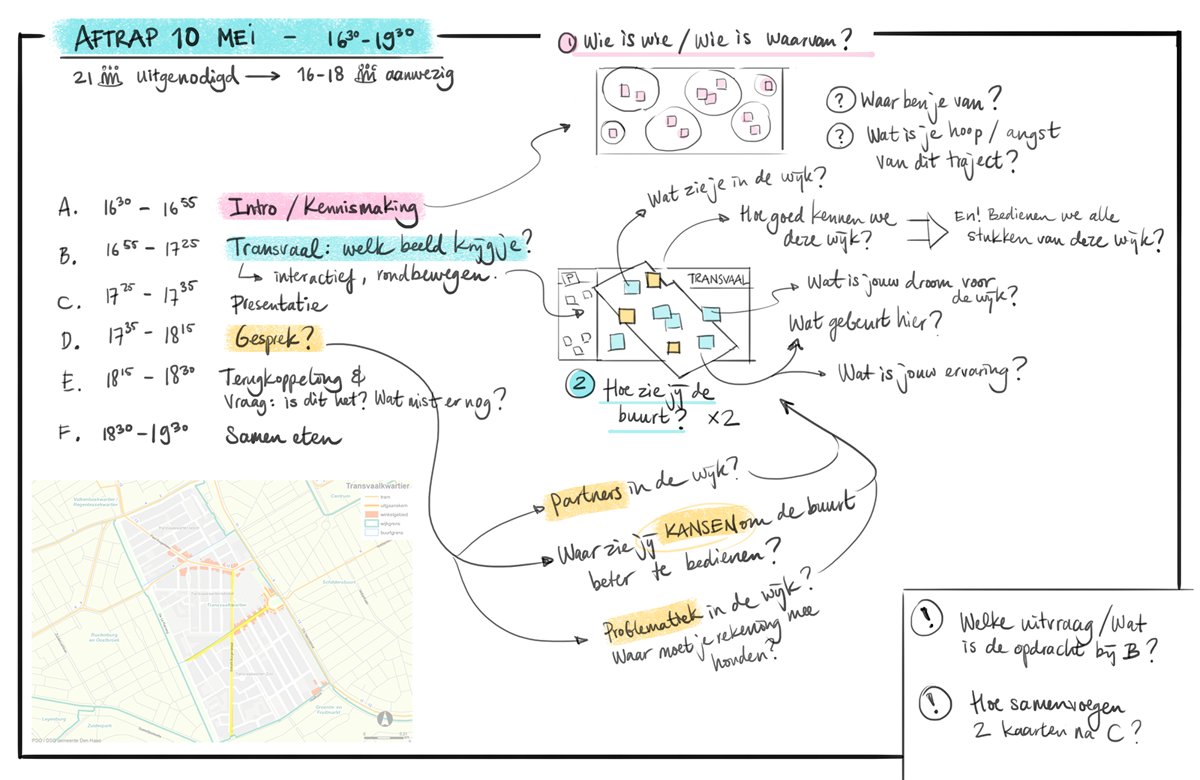 AFTRAP 10 MEI - 16³⁰-19³⁰
21 uitgenodigd → 16-18 aanwezig
A. 16³⁰ - 16⁵⁵ Intro / Kennismaking
B. 16⁵⁵ - 17²⁵ Transvaal: welk beeld krijg je?
↳ interactief, rondbewegen.
C. 17²⁵ - 17³⁵ Presentatie
D. 17³⁵ - 18¹⁵ Gesprek?
E. 18¹⁵ - 18³⁰ Terugkoppeling &
Vraag: is dit het? Wat mist er nog?
F. 18³⁰-19³⁰ Samen eten
1 Wie is wie / Wie is waarvan?
? Waar ben je van?
? Wat is je hoop / angst
van dit traject?
Wat zie je in de wijk?
Hoe goed kennen we
deze wijk?
En! Bedienen we alle
stukken van deze wijk?
P
TRANSVAAL
Wat is jouw droom voor
de wijk?
Wat gebeurt hier?
Wat is jouw ervaring?
2 Hoe zie jij de
buurt? x2
Partners in de wijk?
Waar zie jij KANSEN om de buurt
beter te bedienen?
Problematiek in de wijk?
Waar moet je rekening mee
houden?
Transvaalkwartier
tram
uitgaanskern
winkelgebied
wijkgrens
buurtgrens
Valkenboskwartier /
Regentessekwartier
Centrum
Transvaalkwartier-Noord
Transvaalkwartier-Midden
Transvaalkwartier
Schilderswijk
Rustenburg
en Oostbroek
Transvaalkwartier-Zuid
Leyenburg
Zuiderpark
Groente- en
Fruitmarkt
PSO | DSO Gemeente Den Haag
! Welke uitvraag / Wat
is de opdracht bij B?
! Hoe samenvoegen
2 kaarten na C?